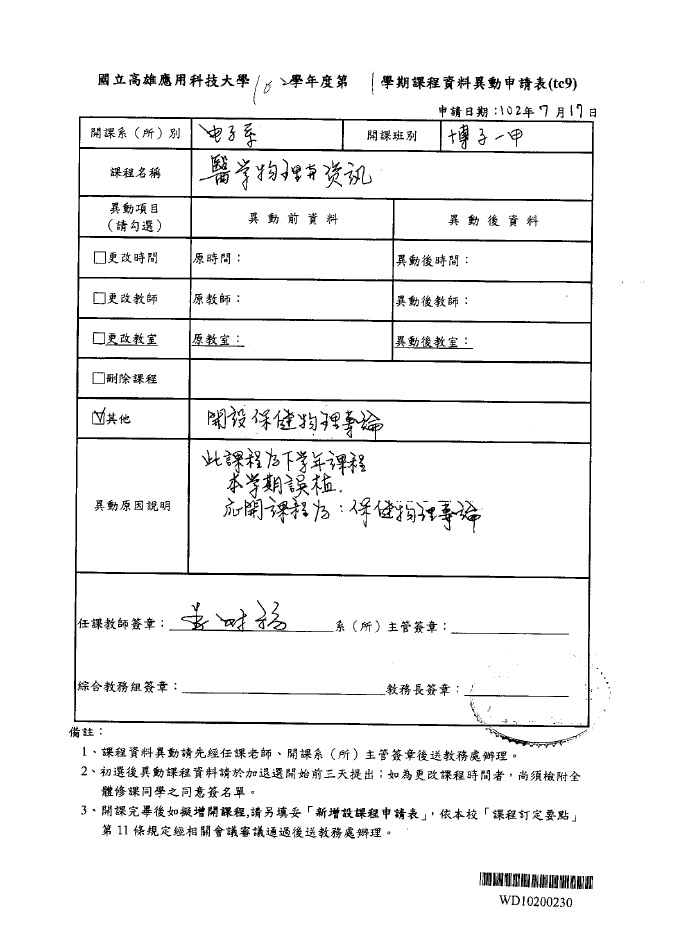 國立高雄應用科技大學102學年度第1學期課程資料異動申請表(tc9)
申請日期：102年7月17日
開課系（所）別 电子系 開課班別 博子一甲
課程名稱 醫学物理与资訊
異動項目（請勾選） 異動前資料 異動後資料
□更改時間 原時間： 異動後時間：
□更改教師 原教師： 異動後教師：
□更改教室 原教室： 異動後教室：
□刪除課程
☑其他 開設保健物理導論
異動原因說明
此課程为下学年課程
本学期誤植.
应開課程为：保健物理導論
任課教師簽章： 系（所）主管簽章：
綜合教務組簽章： 教務長簽章：
備註：
1、課程資料異動請先經任課老師、開課系（所）主管簽章後送教務處辦理。
2、初選後異動課程資料請於加退選開始前三天提出；如為更改課程時間者，尚須檢附全
體修課同學之同意簽名單。
3、開課完畢後如擬增開課程,請另填妥「新增設課程申請表」，依本校「課程訂定要點」
第11條規定經相關會議審議通過後送教務處辦理。
WD10200230